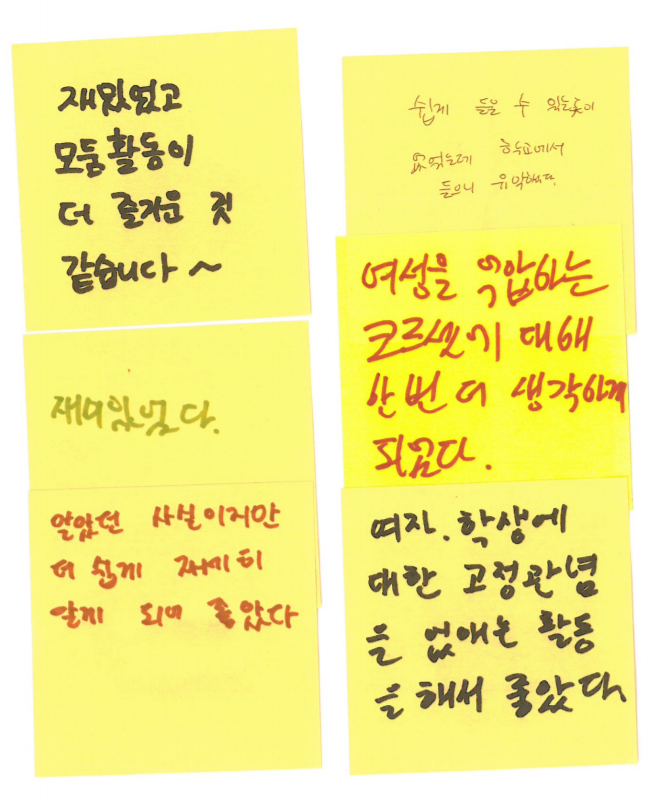 재밌었고
모둠활동이
더 즐거운 것
같습니다 ~
재미있었다.
알았던 사실이지만
더 쉽게 재미히
알게 되어 좋았다
쉽게 들을 수 있는곳이
없었는데 학교에서
들으니 유익했다.
여성을 억압하는
코르셋에 대해
한번 더 생각하게
되었다.
여자. 학생에
대한 고정관념
을 없애는 활동
을 해서 좋았다